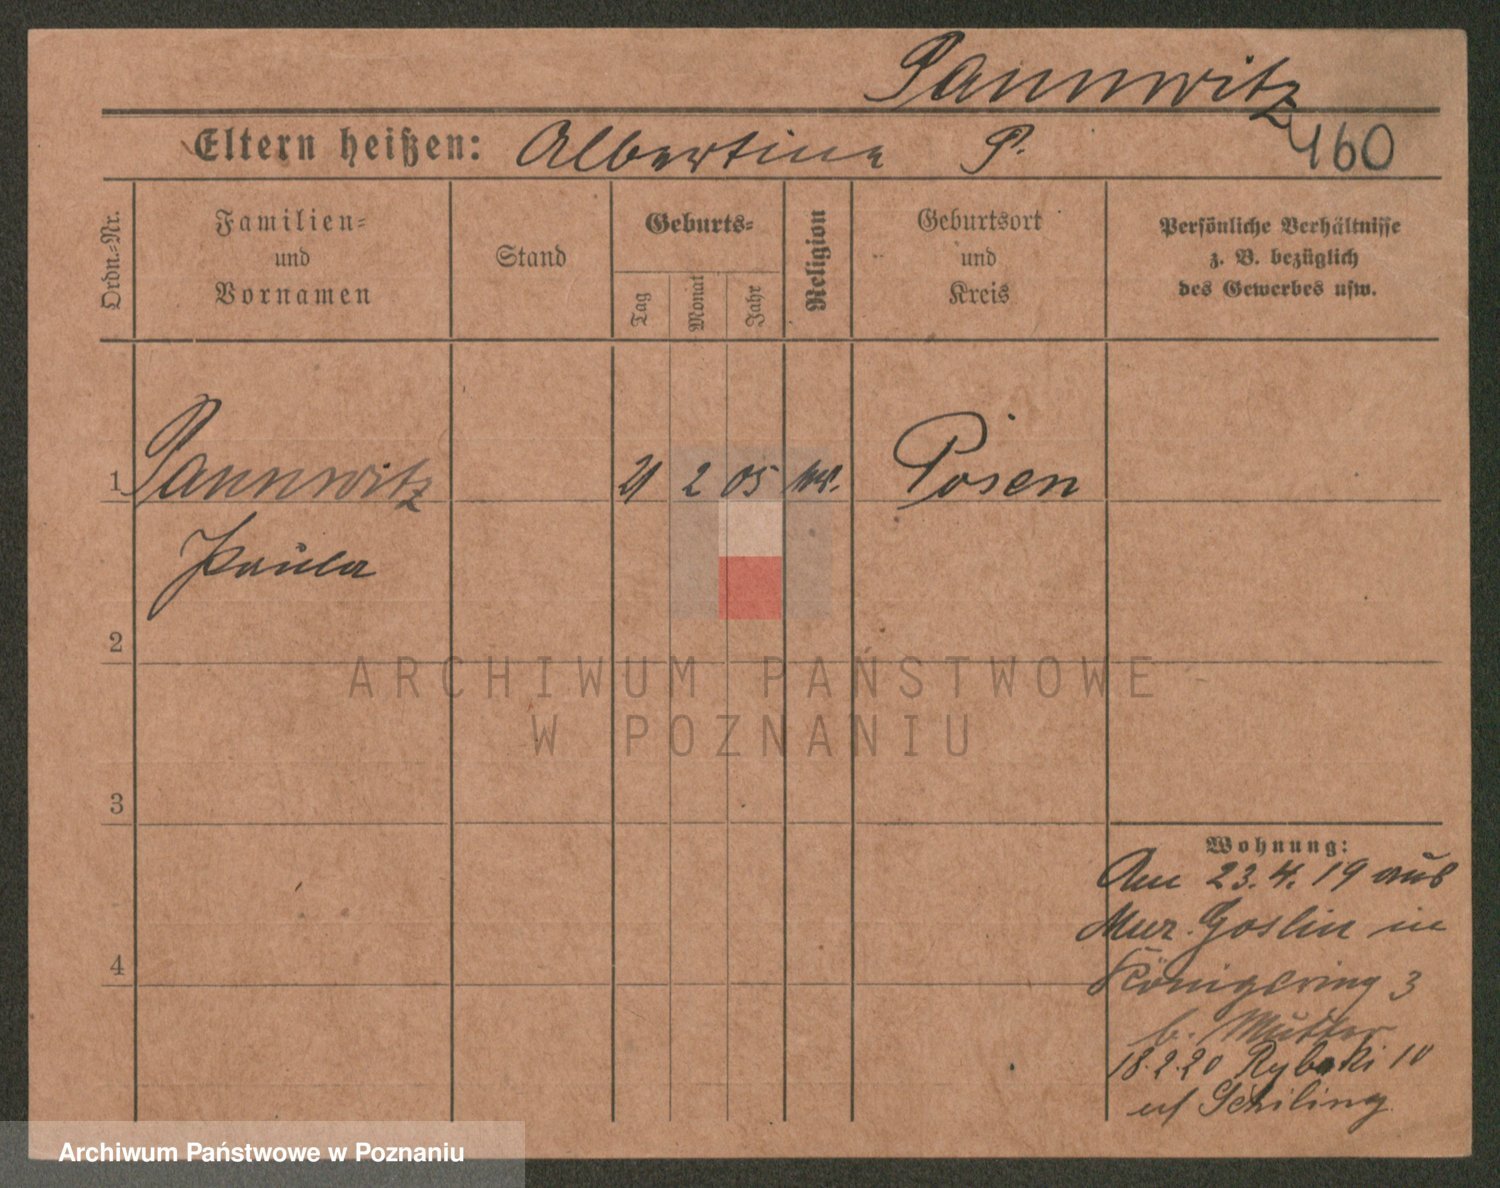 Pannwitz
Eltern heißen: Albertine P. 160
Ordn.=Nr.
Familien=
und
Vornamen
Stand
Geburts=
Tag
Monat
Jahr
Religion
Geburtsort
und
Kreis
Persönliche Verhältnisse
z. B. bezüglich
des Gewerbes usw.
1 Pannwitz 21 2 05 Posen
Paula
2
ARCHIWUM PAŃSTWOWE
W POZNANIU
3
Wohnung:
Am 23.4.19 aus
Mur. Goslin in
4
Königsring 3
b. Mutter
18.2.20 Rybaki 10
Schiling
Archiwum Państwowe w Poznaniu